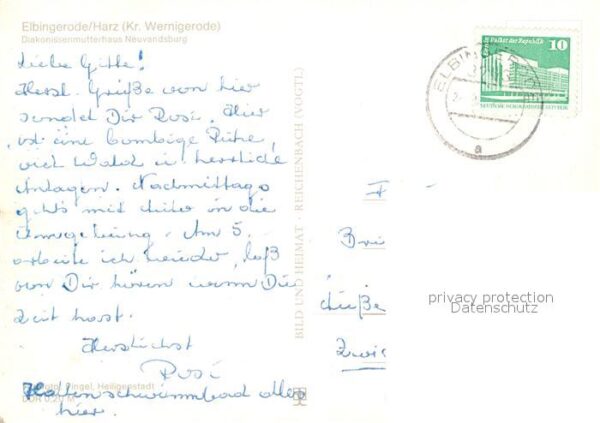 Elbingerode/Harz (Kr. Wernigerode)
Diakonissenmutterhaus Neuvandsburg
Liebe Gitte!
Herzl. Grüße von hier
sendet Dir Rosi. Hier
ist eine bombige Ruhe,
viel Wald u. herrliche
Anlagen. Nachmittags
gehts mit in die
Umgebung. Am 5.
arbeite ich wieder, laß
von Dir hören wenn Du
Zeit hast.
Herzlichst
Rosi
Pingel, Heiligenstadt
Hallenschwimmbad alles
DDR 0,20 M
hier.
BILD UND HEIMAT · REICHENBACH (VOGTL)
Palast der Republik
10
ELBINGEROD
a
F
Bri
Zwic
privacy protection
Datenschutz